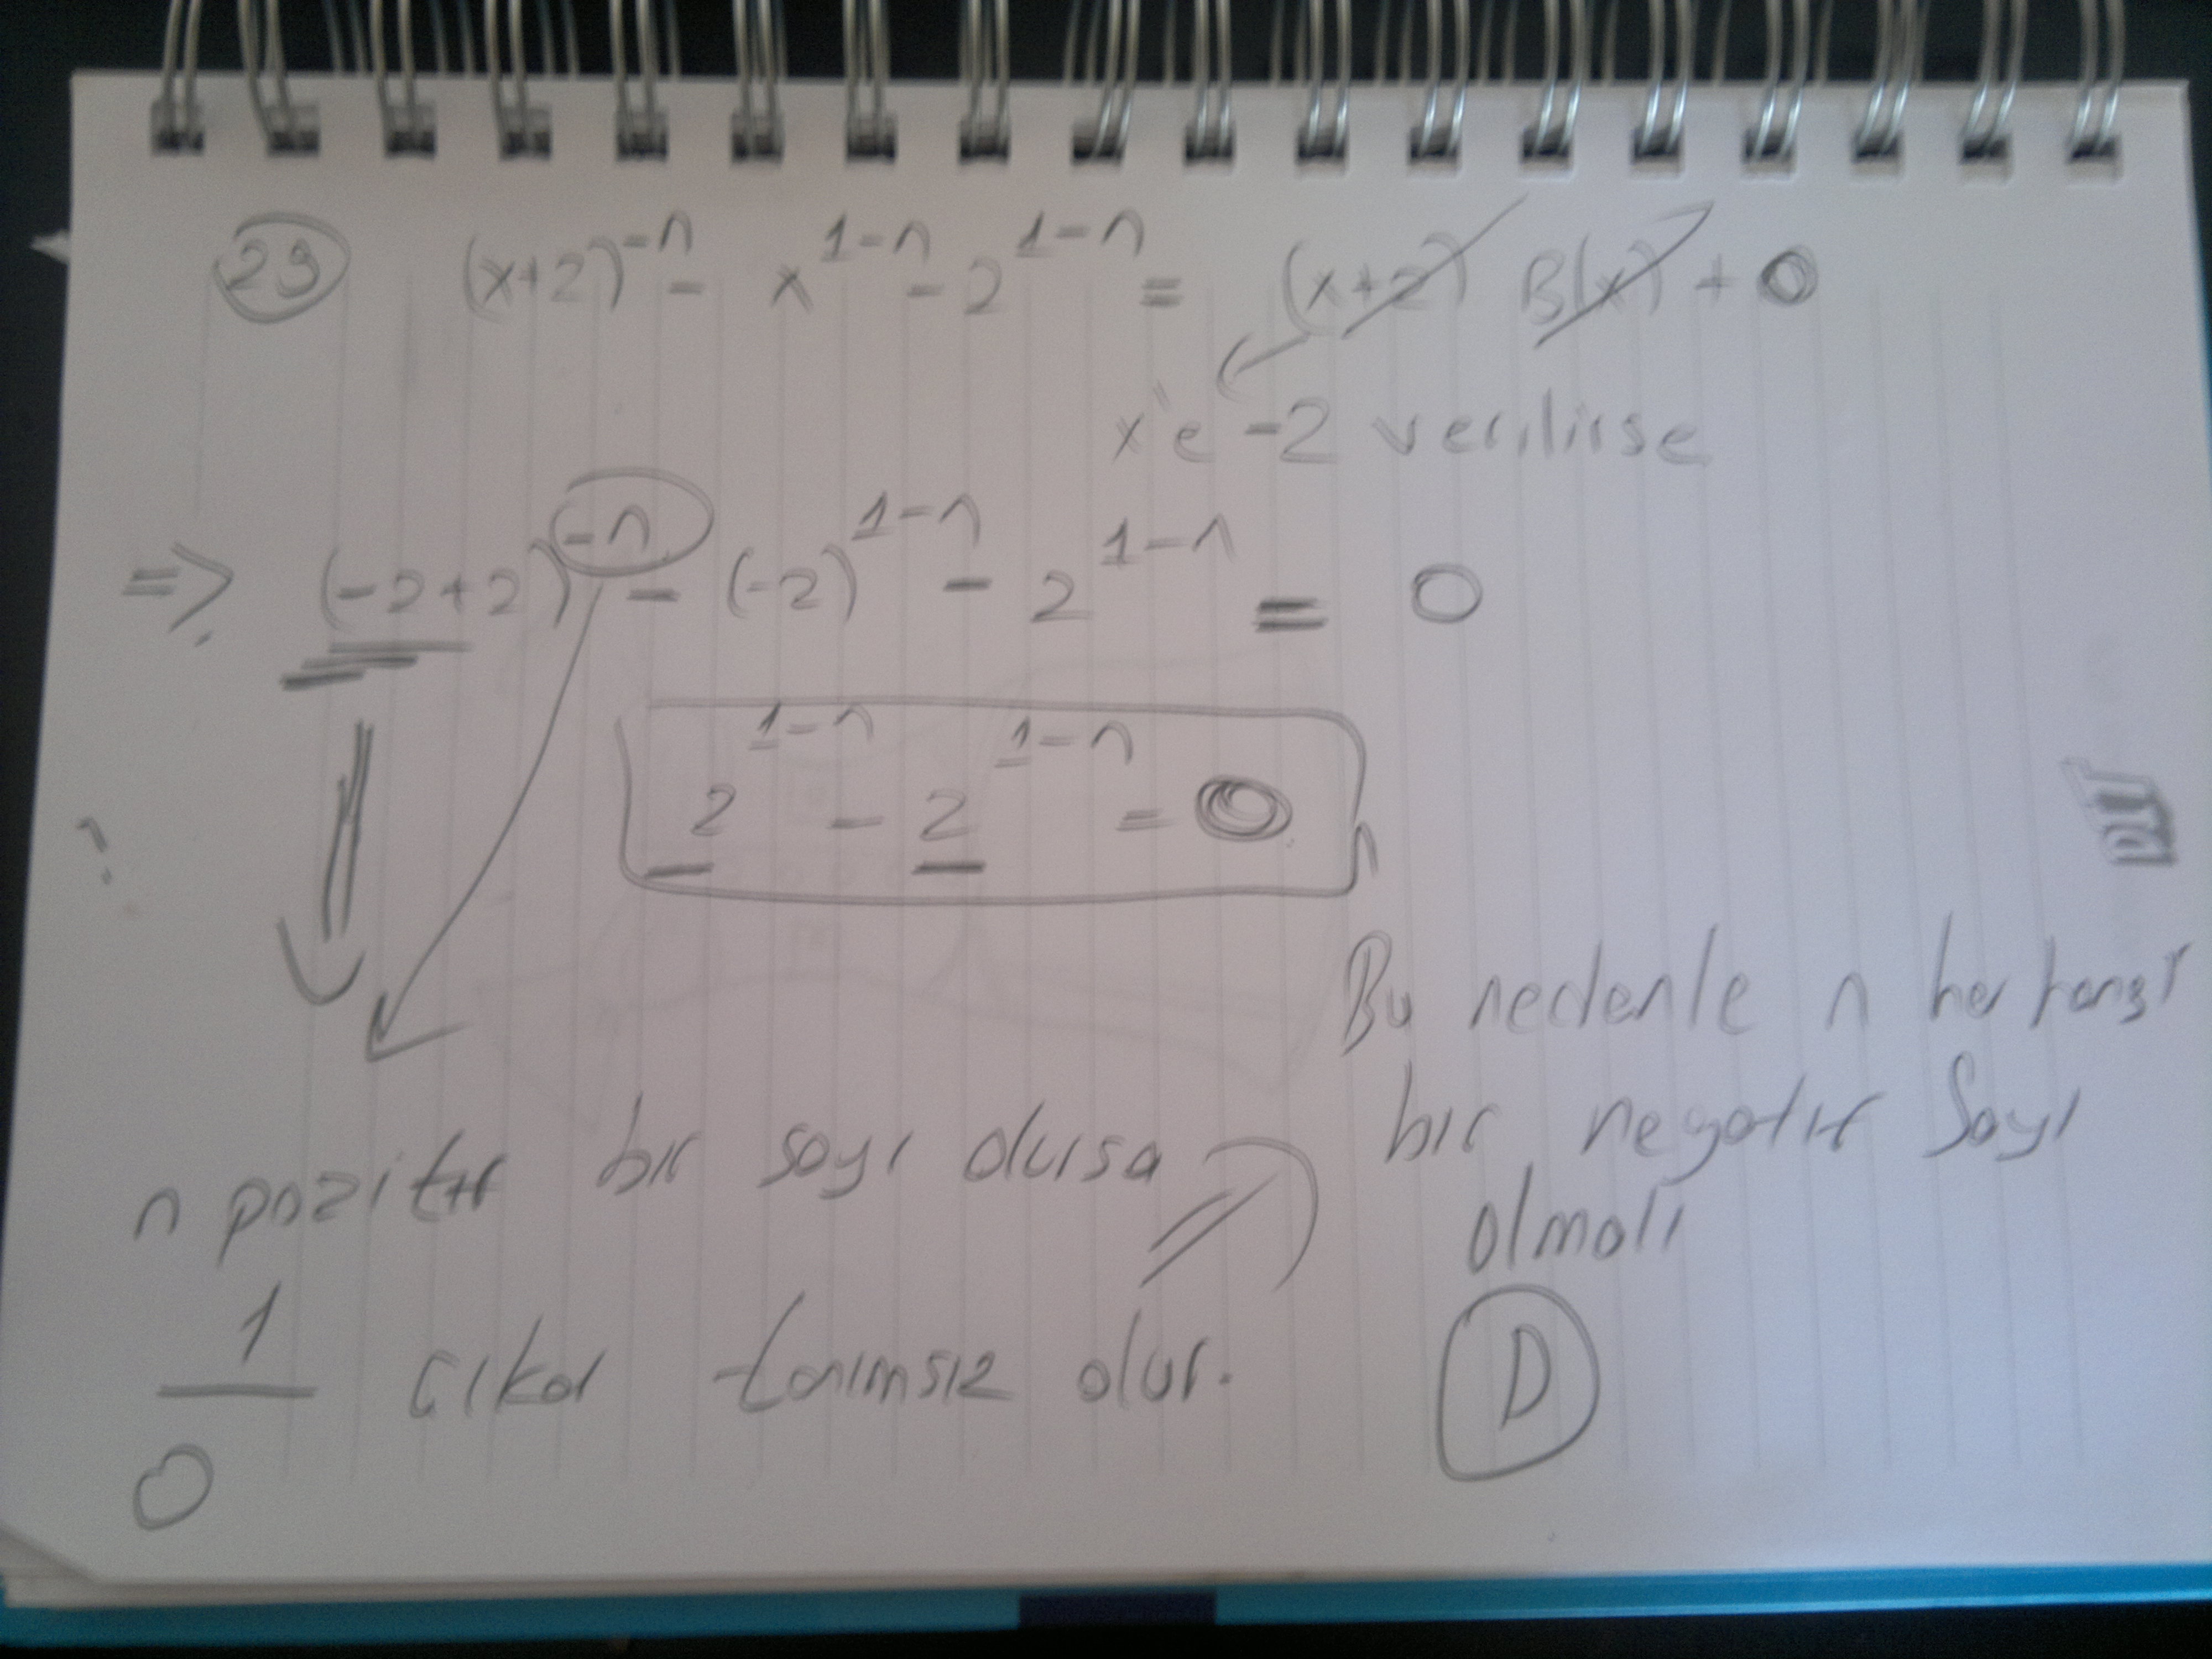 29 (x+2)^-n - x^1-n - 2^1-n = (x+2) B(x) + 0
x'e -2 verilirse
=> (-2+2)^-n - (-2)^1-n - 2^1-n = 0
2^1-n - 2^1-n = 0
n pozitif bir sayı olursa
1/0 çıkar tanımsız olur.
Bu nedenle n herhangi
bir negatif sayı
olmalı
D